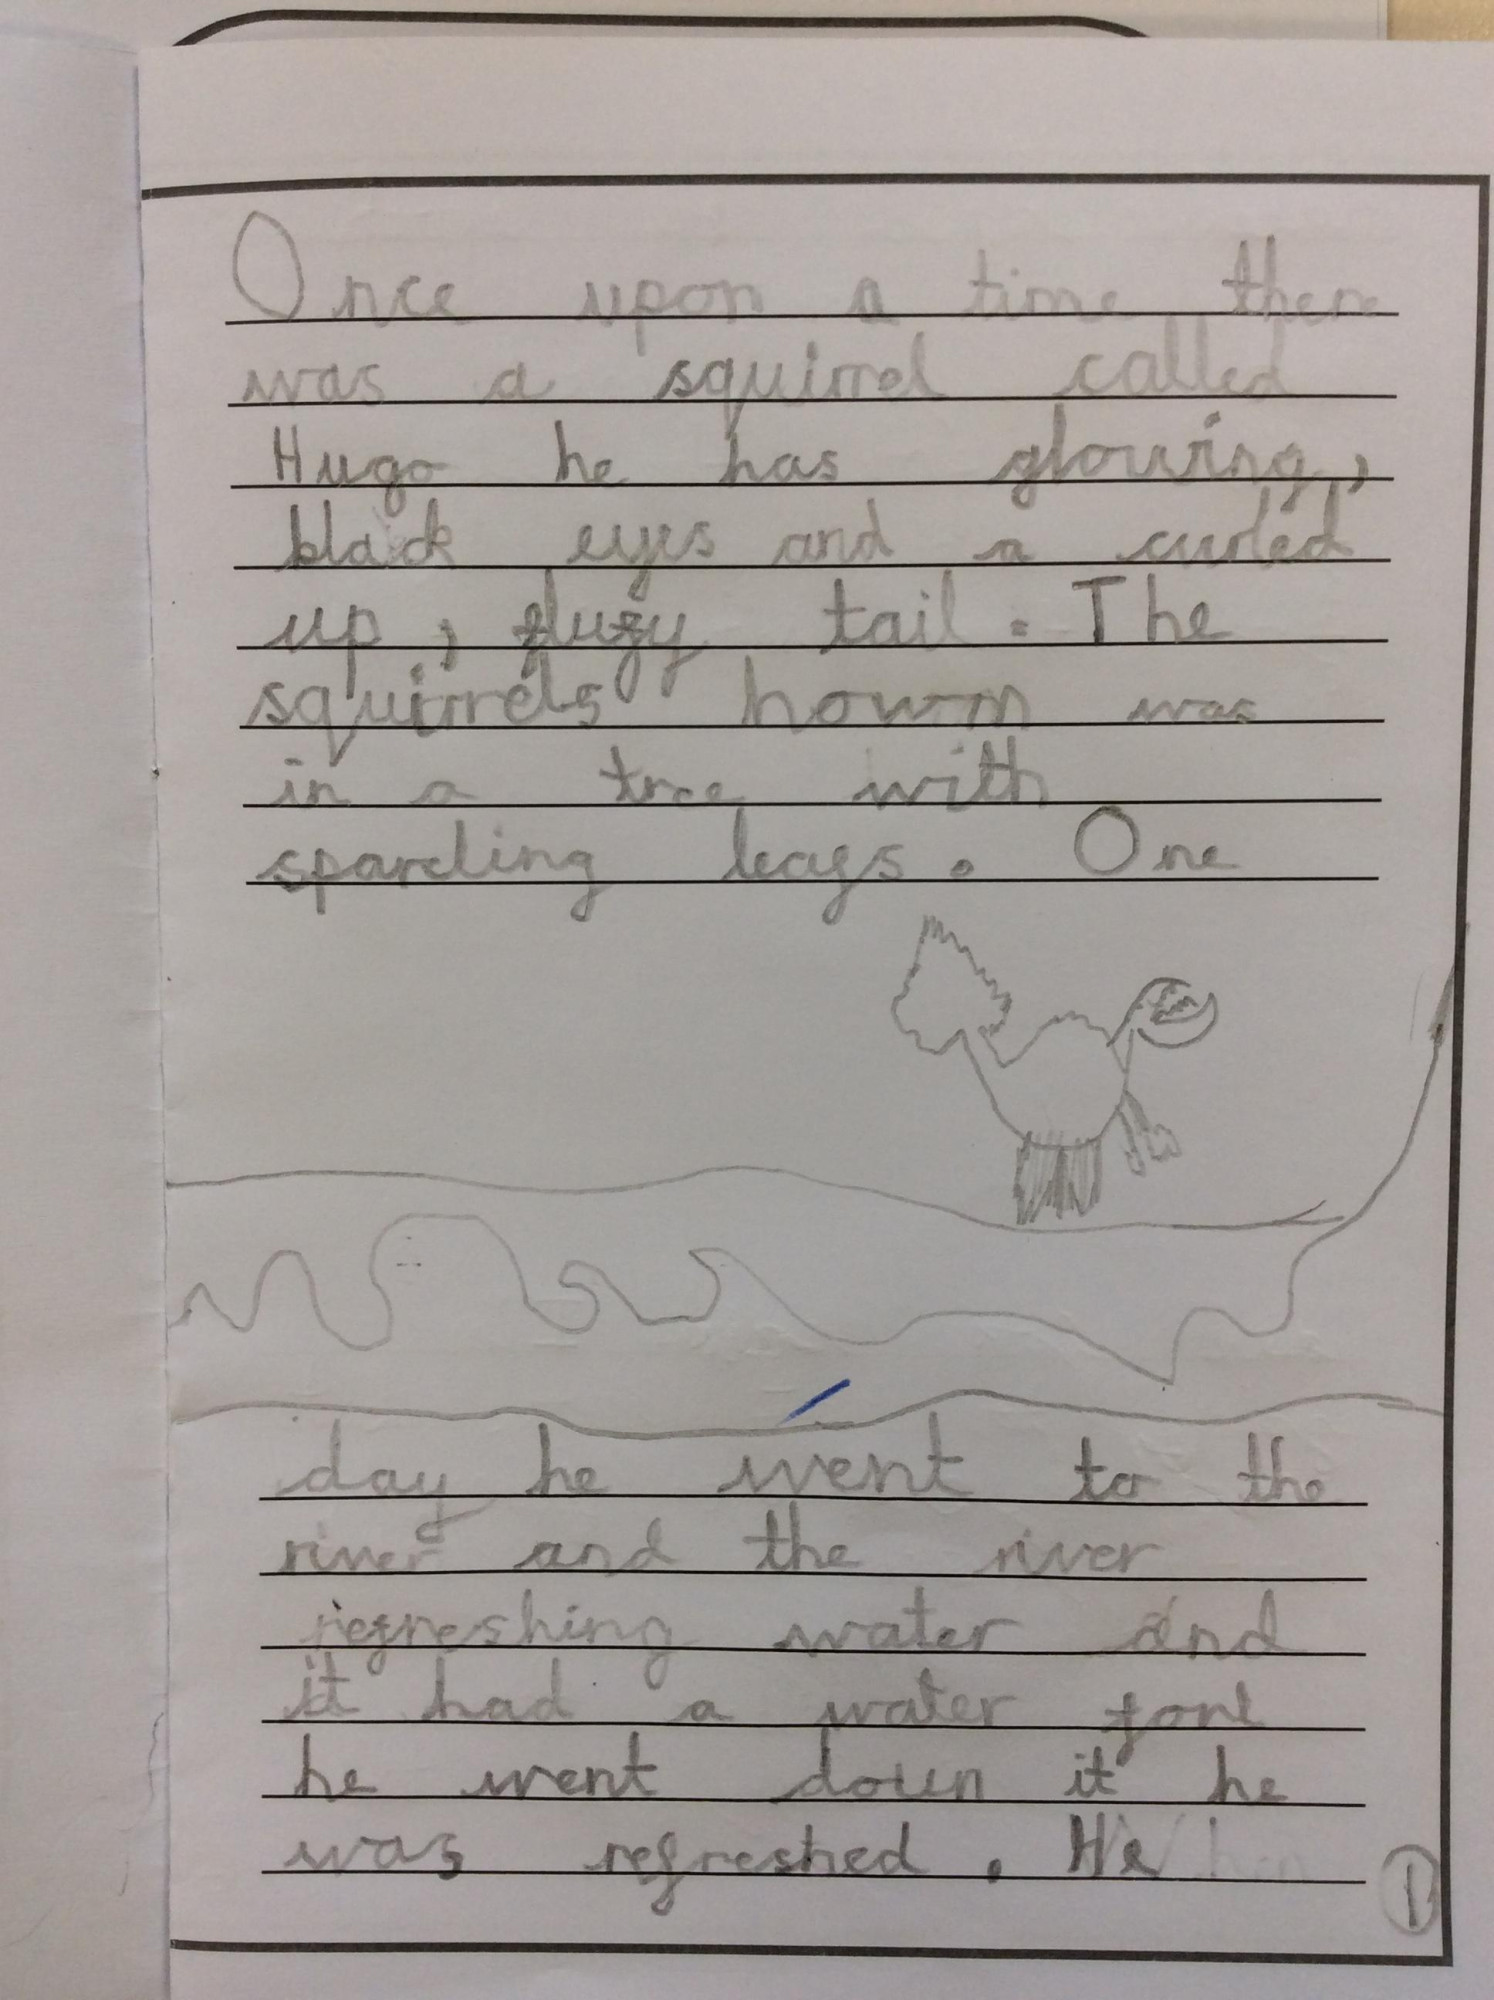 Once upon a time there
was a squirrel called
Hugo he has glowing,
black eyes and a curled
up, flufy tail. The
squirrels howm was
in a tree with
sparcling leafs. One
day he went to the
river and the river
refreshing water and
it had a water
he went down it he
was refreshed. He
1